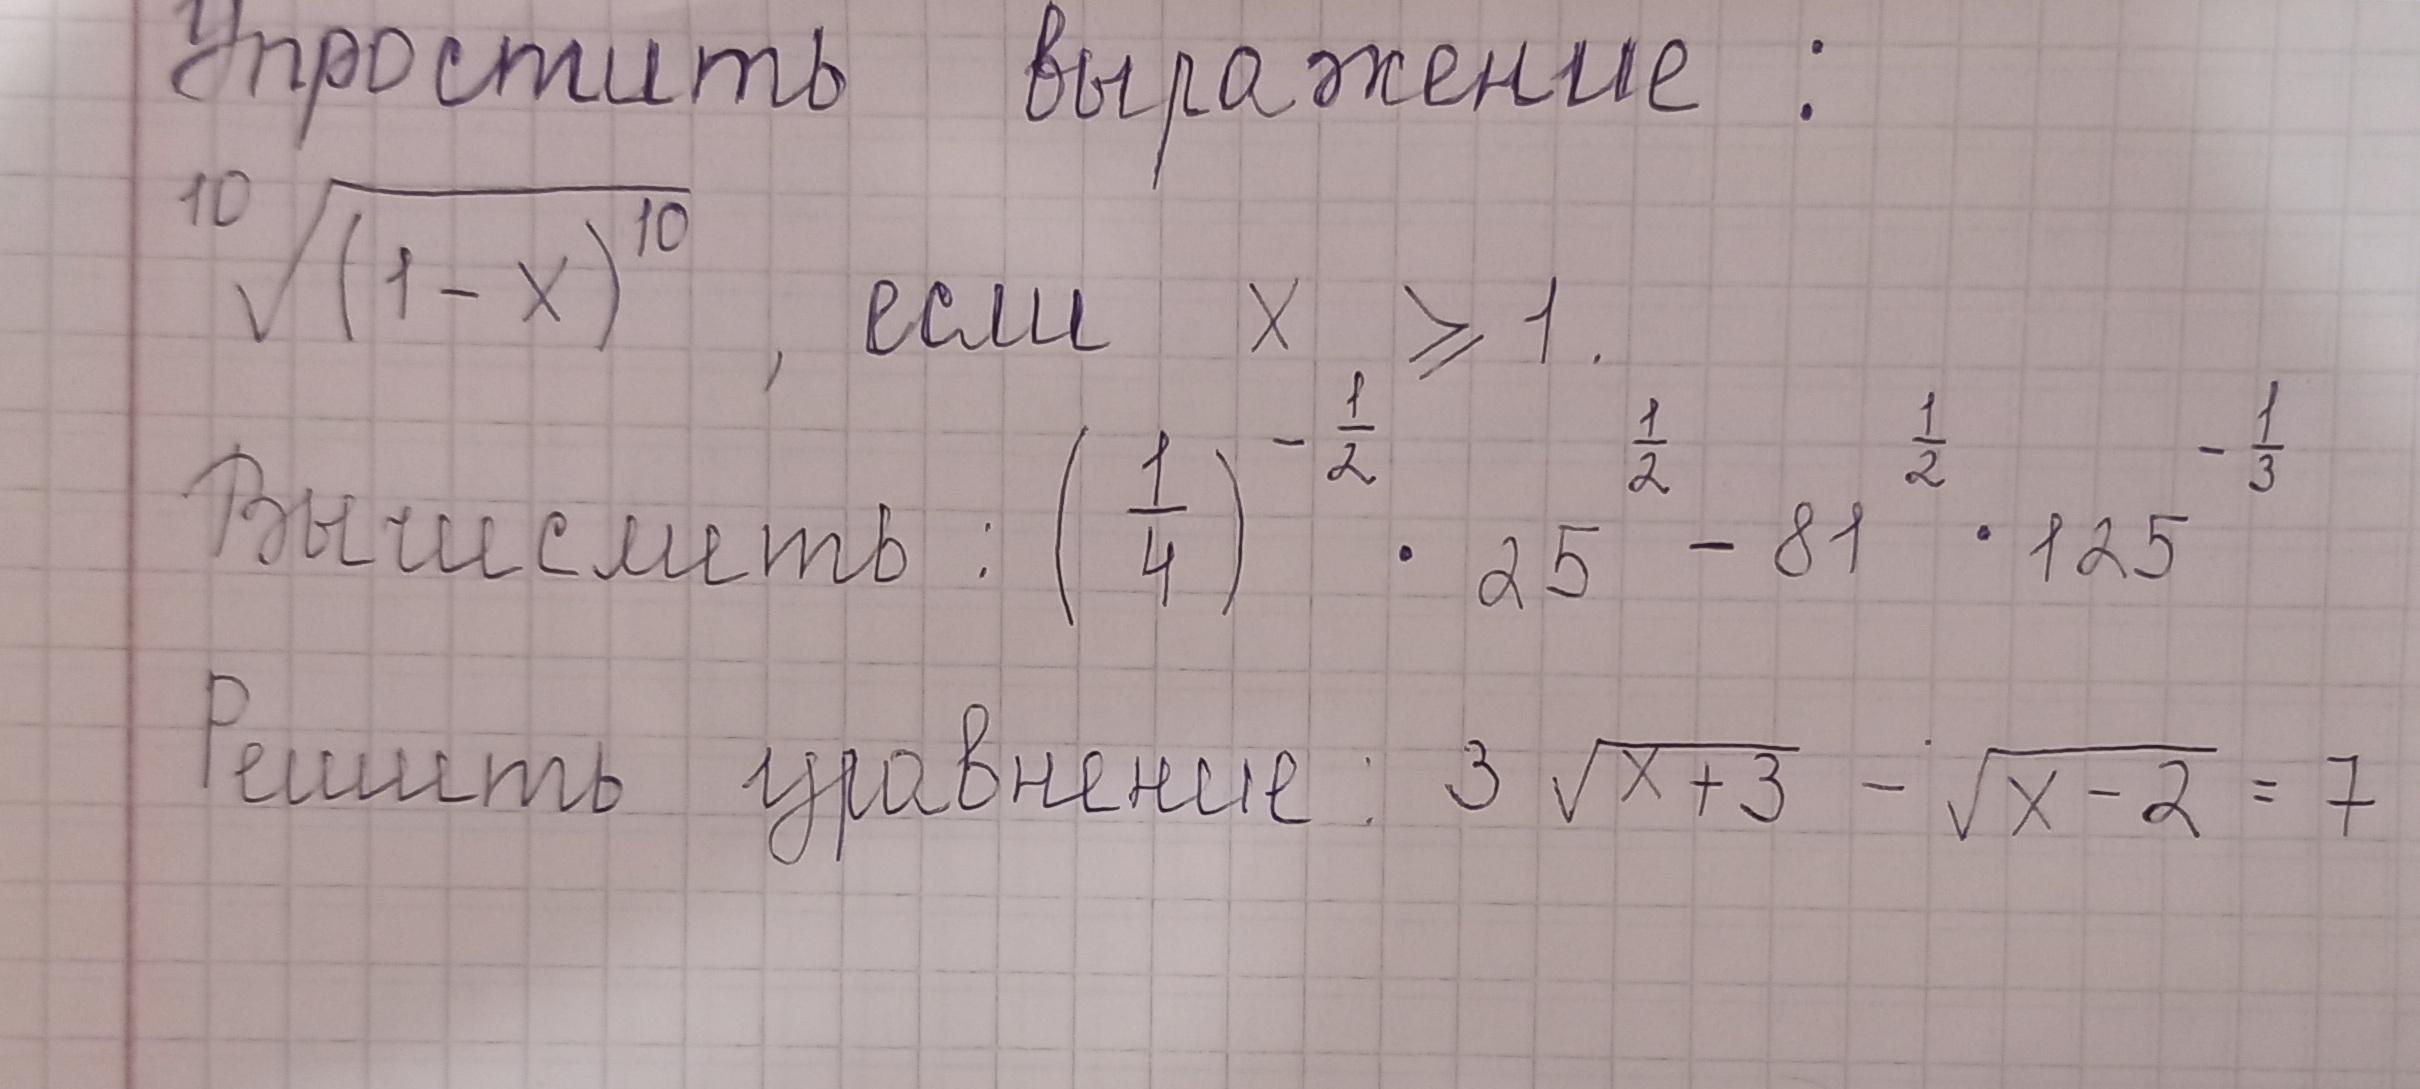 Упростить выражение:
¹⁰√(1-x)¹⁰, если x ⩾ 1.
Вычислить: (1/4)^(-1/2) · 25^(1/2) - 81^(1/2) · 125^(-1/3)
Решить уравнение: 3√(x+3) - √(x-2) = 7